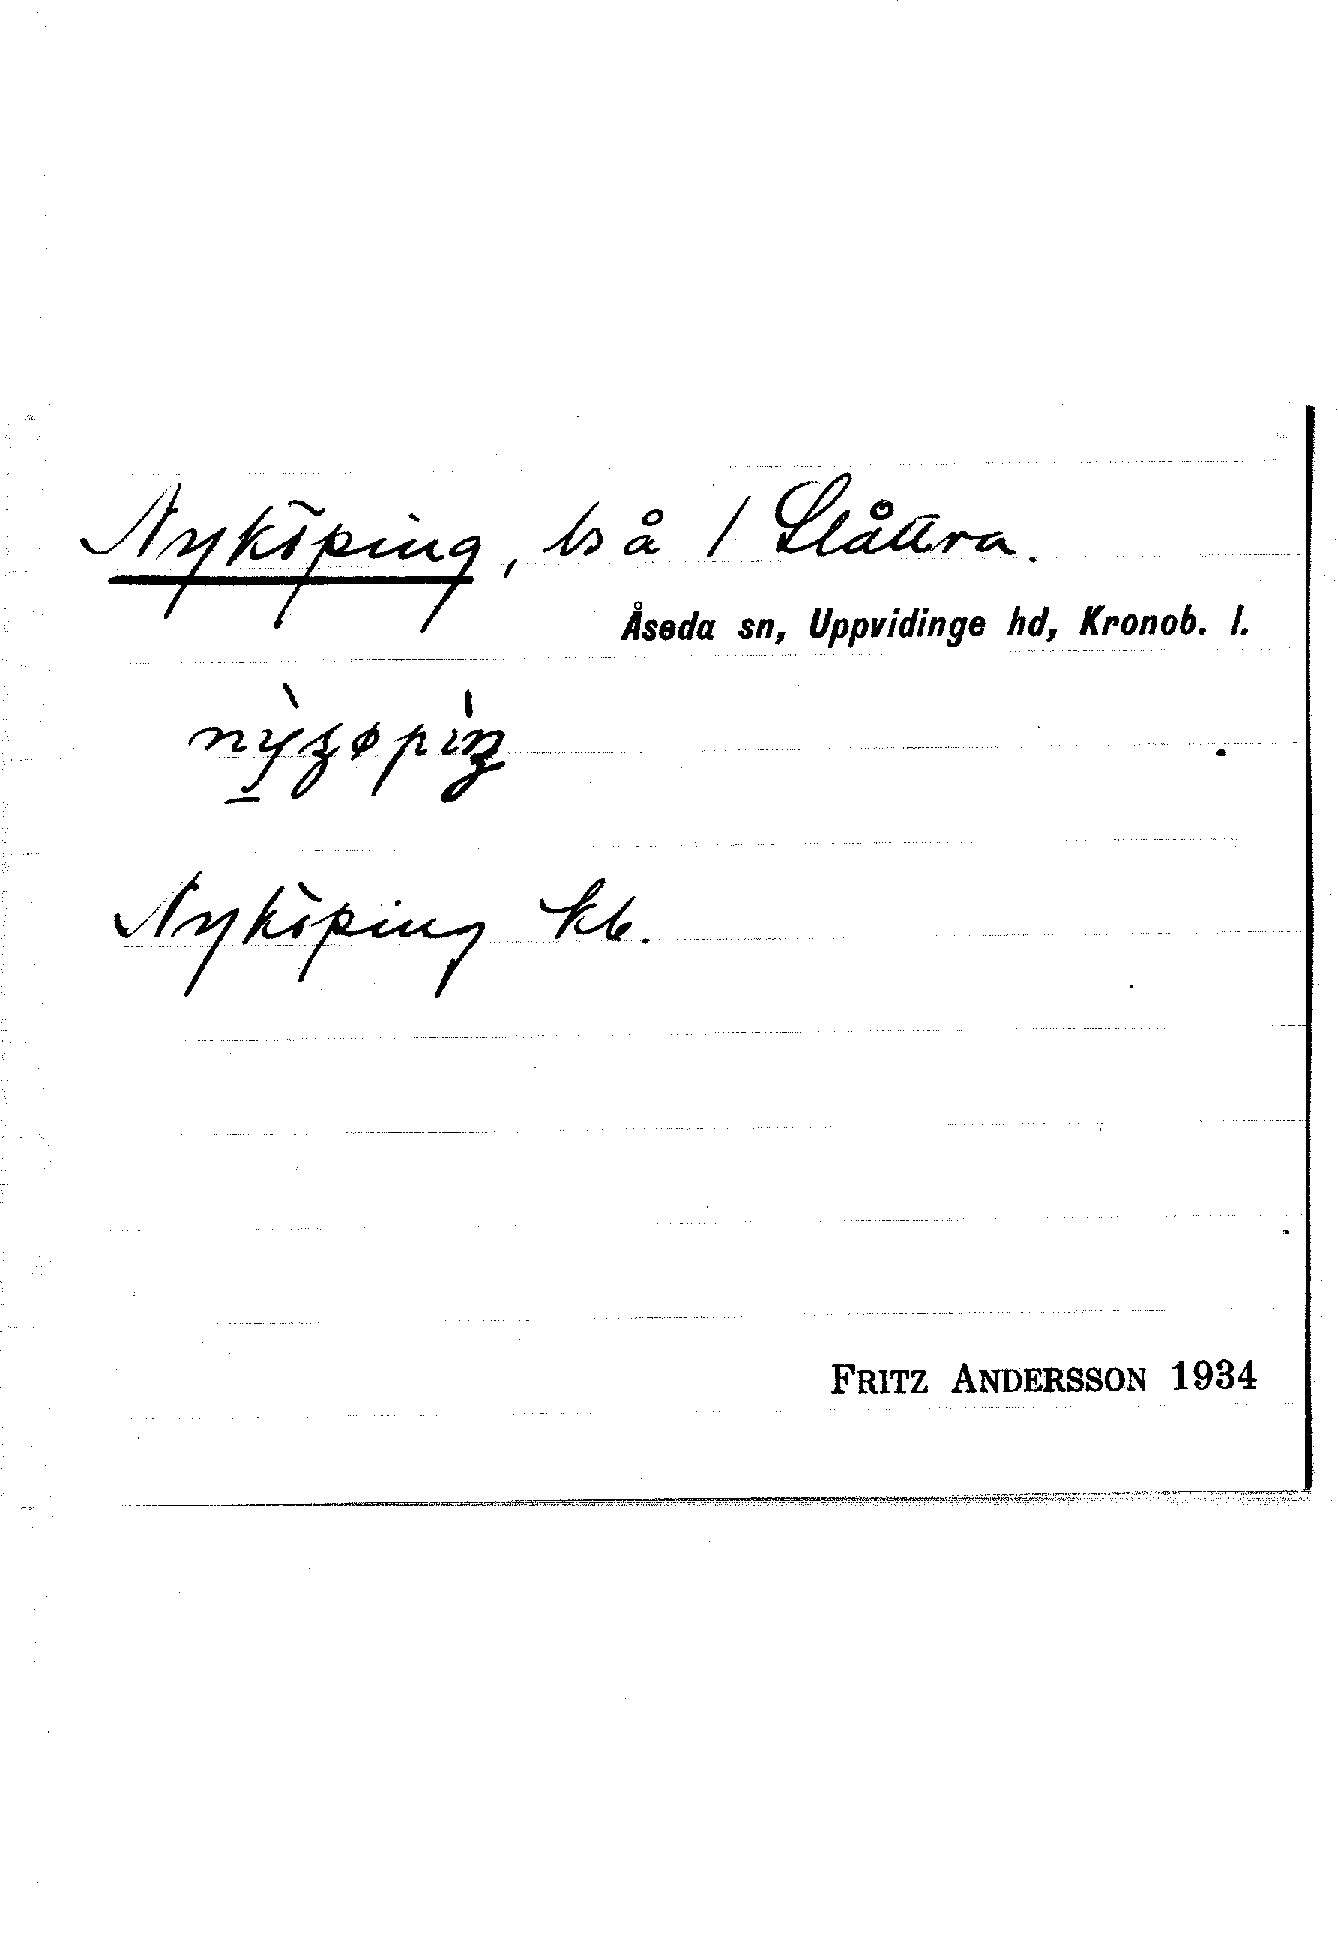 Nyköping, bs å 1 Slåttra.
Åseda sn, Uppvidinge hd, Kronob. l.
Nyköping kb.
FRITZ ANDERSSON 1934